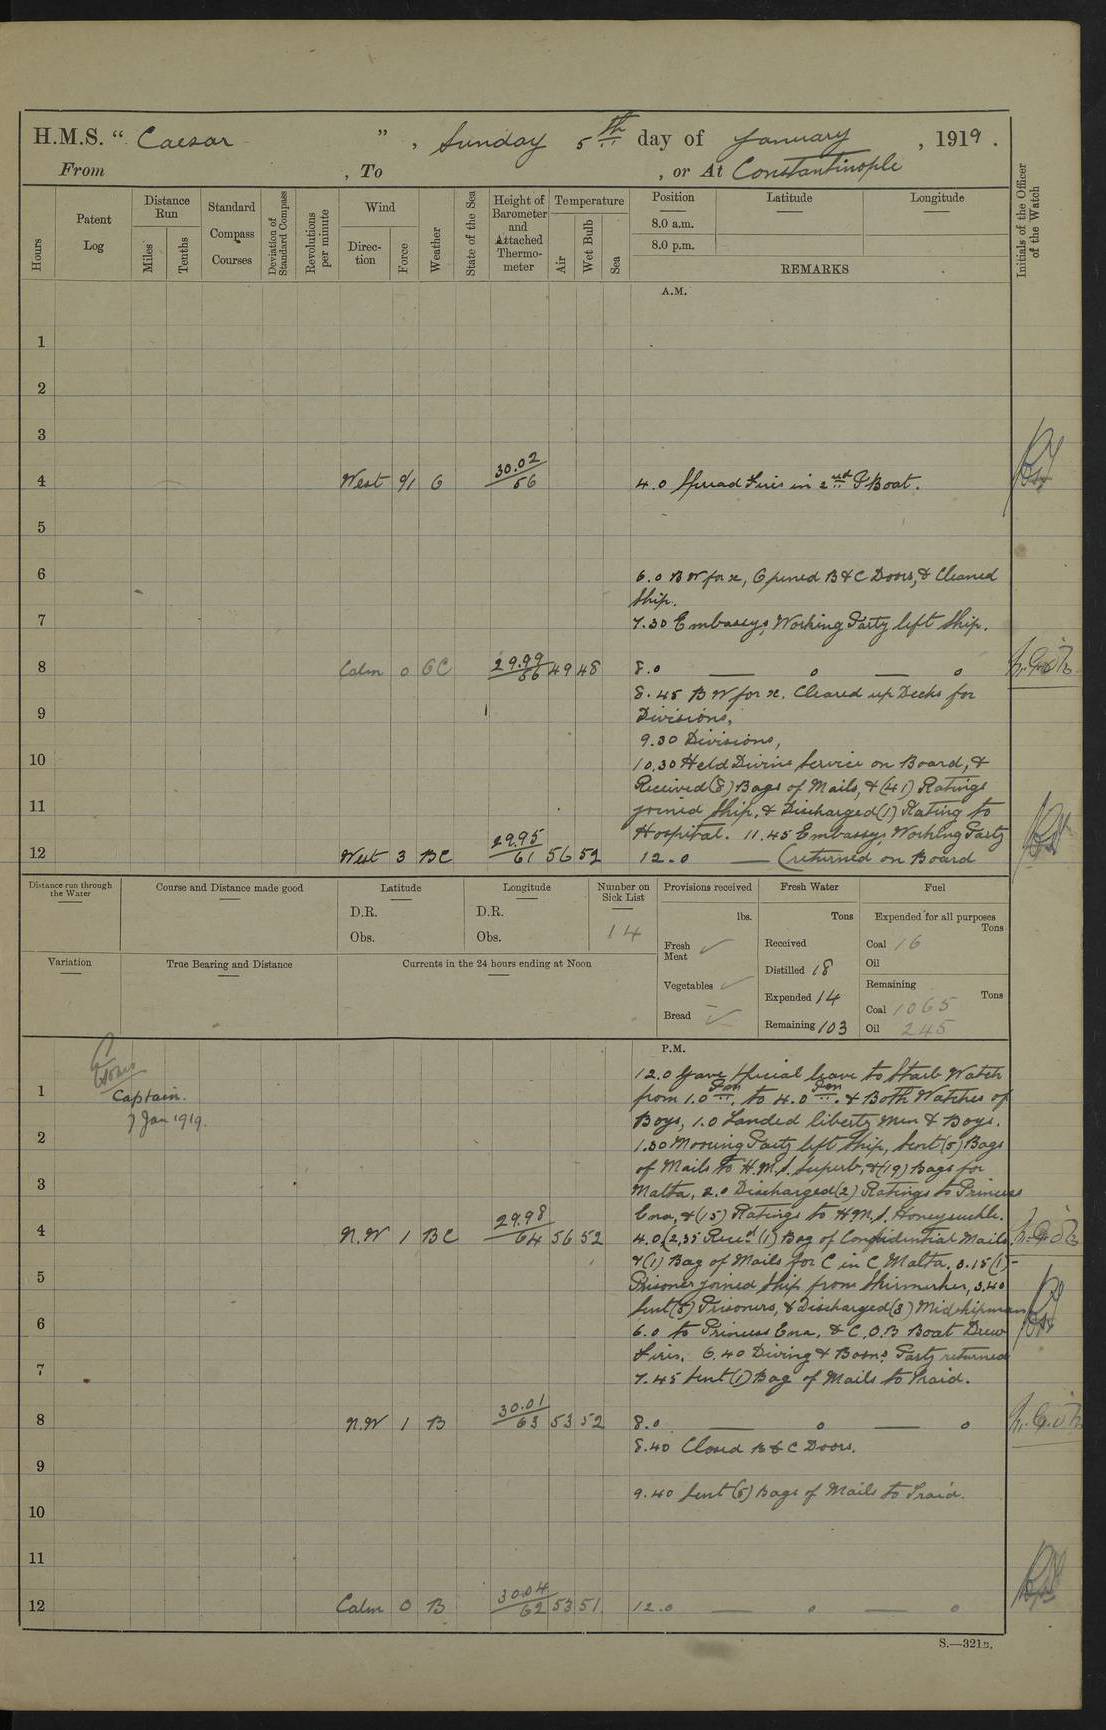 H.M.S. “ Caesar ” , Sunday 5th day of January , 1919 .
From , To , or At Constantinople
Hours
Patent Log
Distance Run
Miles
Tenths
Standard Compass Courses
Deviation of Standard Compass
Revolutions per minute
Wind
Direc-tion
Force
Weather
State of the Sea
Height of Barometer and Attached Thermo-meter
Temperature
Air
Wet Bulb
Sea
Position Latitude Longitude
8.0 a.m.
8.0 p.m.
REMARKS
Initials of the Officer of the Watch
A.M.
1
2
3
4 West 0/1 G 30.02/56 4.0 Spread Fires in 2nd P Boat.
5
6 6.0 B W for x, Opened B & C Doors, & Cleaned
Ship.
7 7.30 Embassy, Working Party left Ship.
8 Calm 0 GC 29.99/56 49 48 8.0 — o — o
8.45 B W for x. Cleared up Decks for
9 Divisions,
9.30 Divisions,
10 10.30 Held Divine Service on Board, &
Received (8) Bags of Mails, & (41) Ratings
11 joined Ship, & Discharged (1) Rating to
Hospital. 11.45 Embassy, Working Party
12 West 3 BC 29.95/61 56 52 12.0 — (returned on Board
Distance run through the Water
Course and Distance made good
Latitude
D.R.
Obs.
Longitude
D.R.
Obs.
Number on Sick List
14
Provisions received
lbs.
Fresh Meat ✓
Vegetables ✓
Bread ✓
Fresh Water
Tons
Received
Distilled 18
Expended 14
Remaining 103
Fuel
Expended for all purposes
Tons
Coal 16
Oil
Remaining
Tons
Coal 1065
Oil 245
Variation
True Bearing and Distance
Currents in the 24 hours ending at Noon
P.M.
12.0 Gave special leave to Starb Watch
1 Captain. from 1.0 pm. to 4.0 pm. & Both Watches of
7 Jan 1919. Boys, 1.0 Landed liberty men & Boys.
2 1.30 Mooring Party left Ship, Sent (5) Bags
of Mails to H.M.S. Superb, & (19) Bags for
3 Malta, 2.0 Discharged (2) Ratings to Princess
Ena, & (15) Ratings to H.M.S. Honeysuckle.
4 N.W 1 BC 29.98/64 56 52 4.0 (2.35 Recd (1) Bag of Confidential Mails,
& (1) Bag of Mails for C in C Malta. 3.15 (1)-
5 Prisoner joined Ship from Skirmisher, 3.40
Sent (5) Prisoners, & Discharged (3) Midshipman
6 6.0 to Princess Ena. & C.O.B Boat Drew
Fires. 6.40 Diving & Bosns Party returned
7 7.45 Sent (1) Bag of Mails to Praid.
8 N.W 1 B 30.01/63 53 52 8.0 — o — o
8.40 Closed B & C Doors.
9
9.40 Sent (5) Bags of Mails to Praid.
10
11
12 Calm 0 B 30.04/62 53 51 12.0 — o — o
S.—321B.